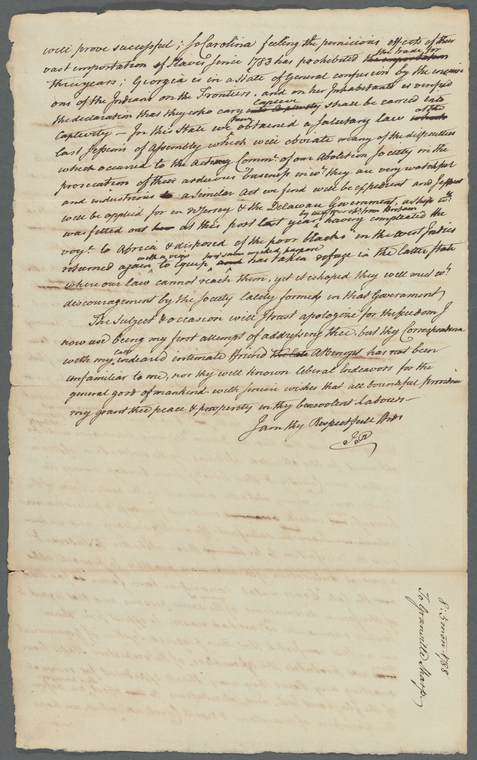 will prove successful; So Carolina feeling the pernicious effects of their
vast importation of Slaves since 1783 has prohibited the importation the trade for
three years; Georgia is in a State of General confusion by the incursi
ons of the Indians on the Frontiers, and on her Inhabitants is verified
the declaration that they who cary into Captivity captive shall be carried into
captivity — In this State we have obtained a salutary law which at the
last Sessions of Assembly which will obviate many of the difficulties
which occurred to the Acting Committ. of our Abolition Society in the
prosecution of their arduous business in wch. they are very watchful
and industrious to a similar Act we find will be expedient and I expect
will be applied for in N Jersey & the Delaware Government, a ship wch.
was fitted out here at this port last year by from Britain having compleated the
voyge. to Africa & disposed of the poor blacks in the West Indies
returned again with a view to equip, for same wicked purpose and has taken refuge in the latter State
where our law cannot reach them, yet it is hoped they will meet wth.
discouragement by the Society lately formed in that Government
The Subject & occasion will I trust apologize for the freedom I
now use being my first attempt of addressing thee, but thy Correspondence
with my late endeared intimate Friend the late A Benezet has not been
unfamiliar to me, nor thy well known liberal Endeavors for the
general good of mankind with sincere wishes that all bountiful providence
my grant thee peace & prosperity in thy benevolent Labours —
I am thy Respectfull Frd.
JP
8. 5 mon 1788
To Granville Sharp